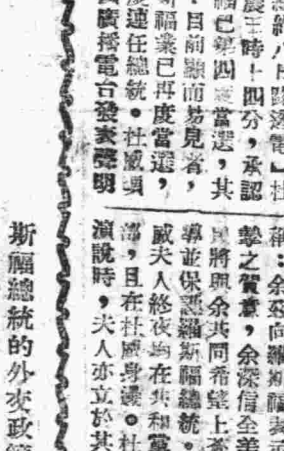 晨三時十四分，承認
福已第四度當選，其
目前顯而易見者，
斯福業已再度當選，
連任總統。杜威頃
廣播電台發表聲明
稱：余亟向羅斯福表示
摯之賀意，余深信全美
民將與余共同希望上蒼
導並保護羅斯福總統。
威夫人終夜均在共和黨
部，且在杜威身邊。杜
演說時，夫人亦立於其
斯福總統的外交政策